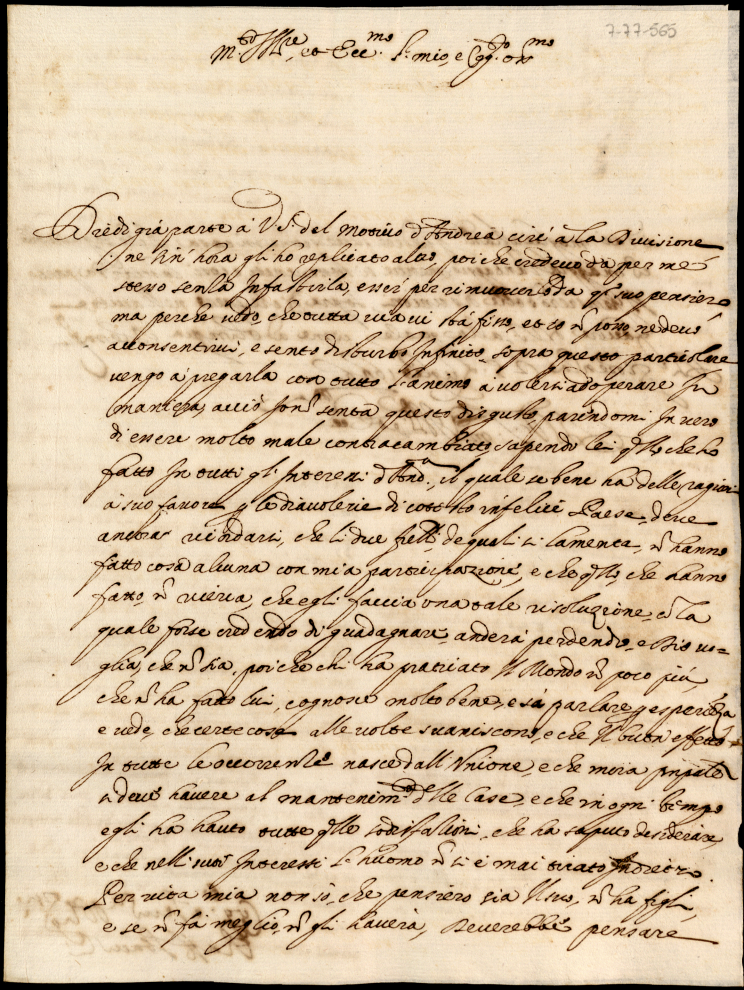 7-77-565
M.to Ill.re, et Ecc.mo S.r mio, e Cog.to oss.mo
Diedi già parte à V.S. del motivo d'Andrea circ' à la Divisione
ne sin' hora gli ho replicato altro, poi che credevo da per me
stesso senza Infastirla, esser per rimuoverlo da q.sto suo pensiero
ma perche vedo, che tutta via vi stà fisso, et io ñ posso ne devo
acconsentirvi, e sento disturbo Infinito, sopra questo particolare
vengo à pregarla con tutto l'animo à volersi adoperare In
maniera, acciò Io resti senza questo disgusto parendomi In vero
di essere molto male contracambiato sapendo lei q.llo che ho
fatto In tutti gl'Interessi d'And.a, il quale se bene ha delle ragioni
à suo favore p le diavolerie di cotesto infelice Paese, deve
ancora ricordarsi, che li due frelli de quali si lamenta, ñ hanno
fatto cosa alcuna con mia participazione, e che q.llo, che hanno
fatto, ñ merita, che egli faccia una tale risoluzione, cõ la
quale forse credendo di guadagnare, anderà perdendo, e Dio vo=
glia, che ñ sia, poiche chi ha praticato Il Mondo ñ poco più,
che ñ ha fatto lui, cognosce molto bene, e sà parlare p esperienza
e vede, che certe cose alle volte svaniscono, e che Il buon effetto
In tutte le occorrenze nasce dall'Unione, e che mira prîpale
si deve havere al mantenim.to delle Case, e che in ogni tempo
egli ha hauto tutte q.lle sodisfazioni, che ha saputo desiderare
e che nelli suoi Interessi l'huomo ñ si è mai tirato Indietro.
Per vita mia non sò, che pensiero sia Il suo, ñ ha figli,
e se ñ fà meglio, ñ gli haverà, Deverebbe pensare